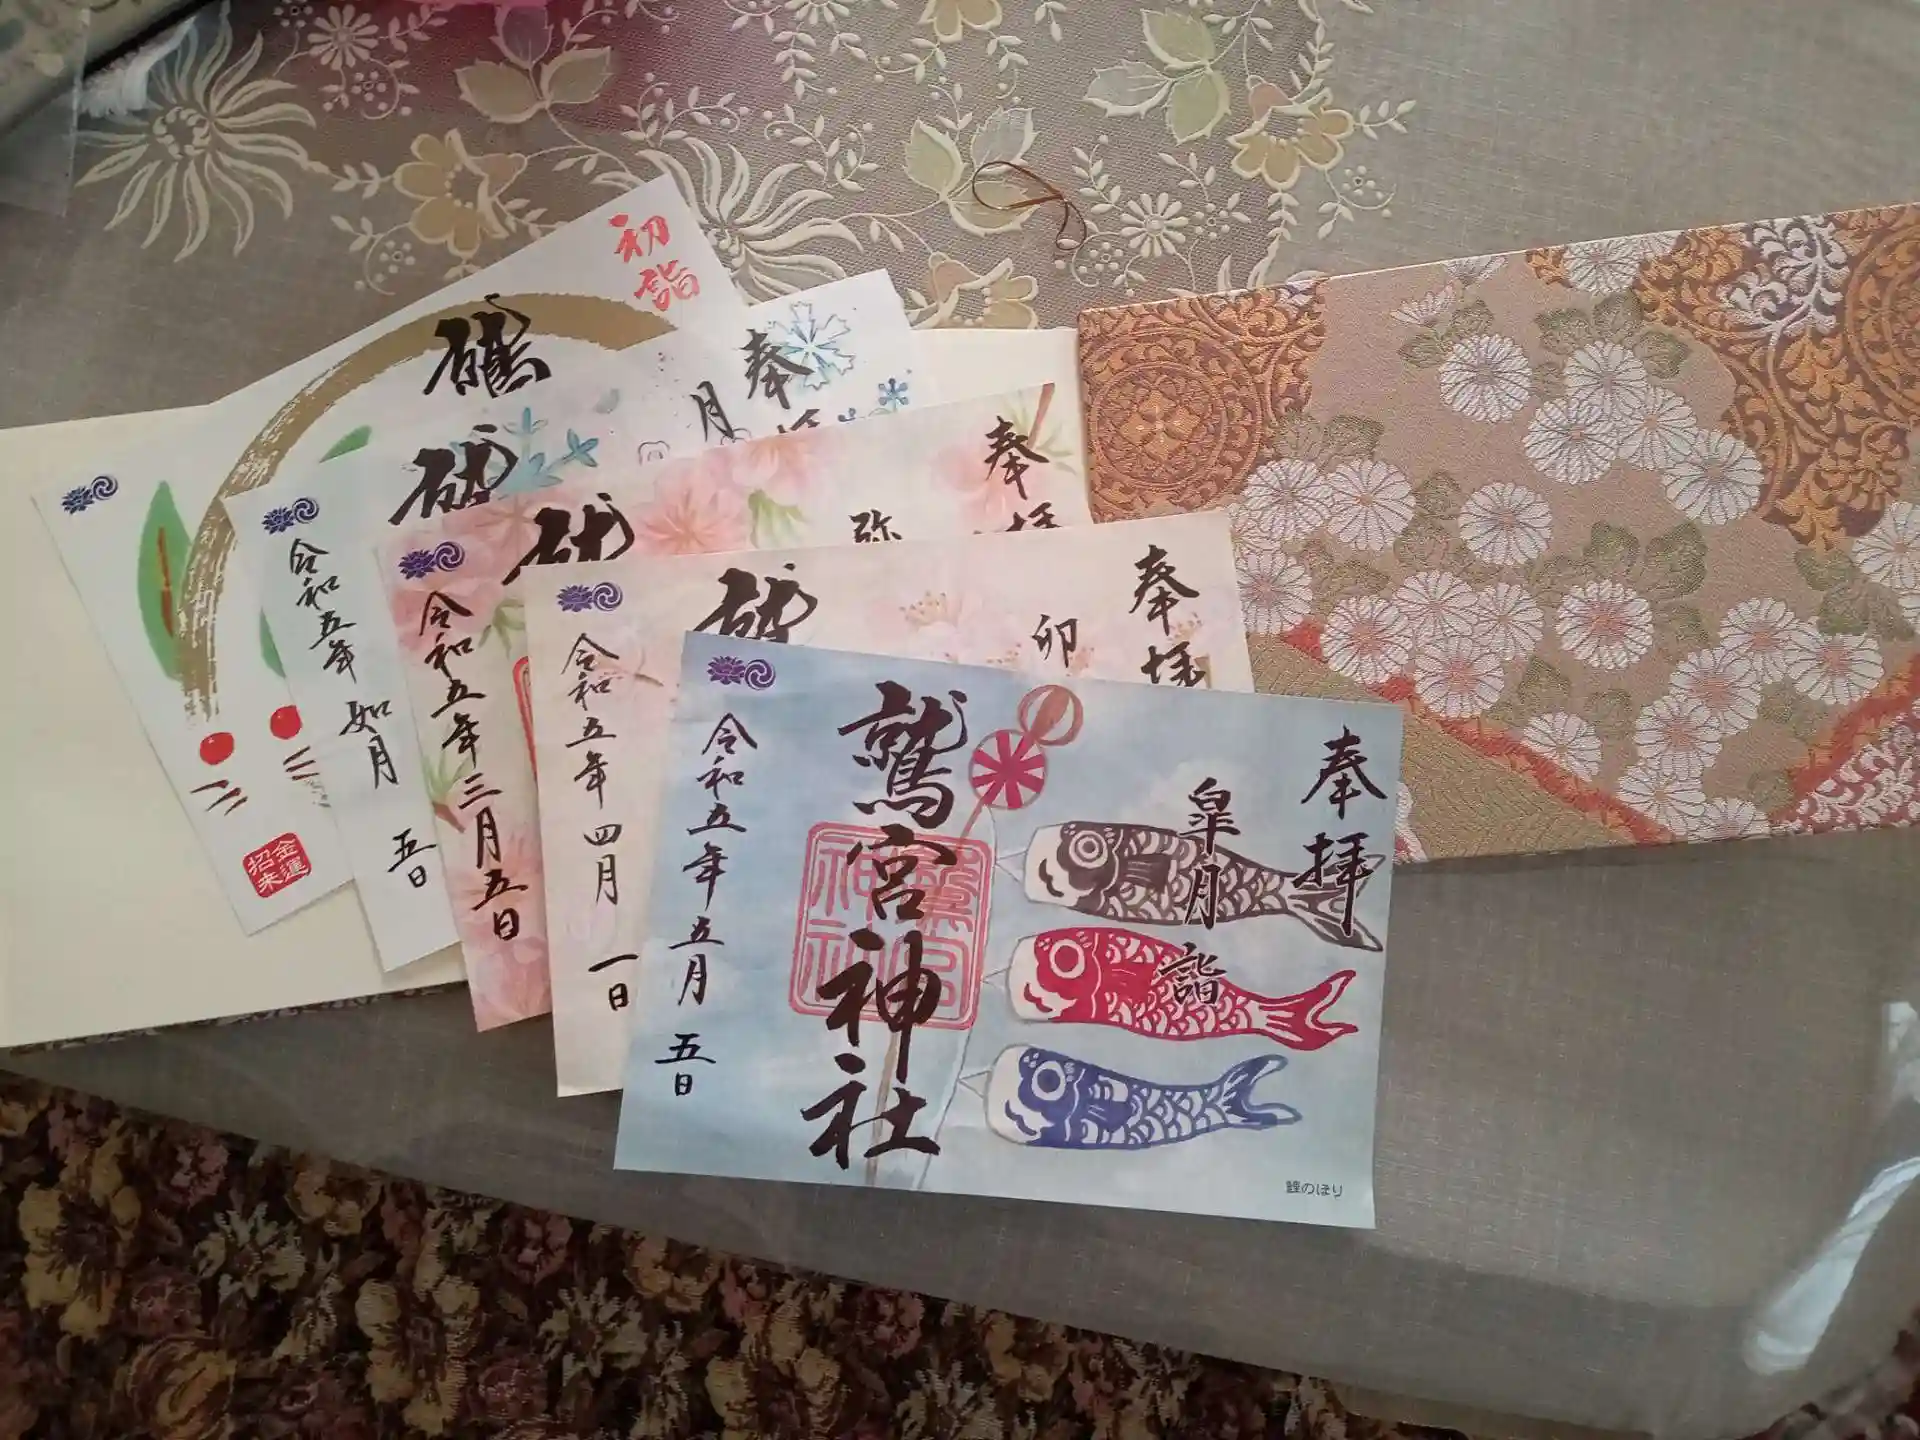 初詣
金運
招来
奉
月
令和五年
如月
五日
奉拝
弥
令和五年三月五日
奉拝
卯
令和五年四月
一日
奉拝
皐月
詣
鷲宮神社
鷲宮
神社
令和五年五月
五日
鯉のぼり